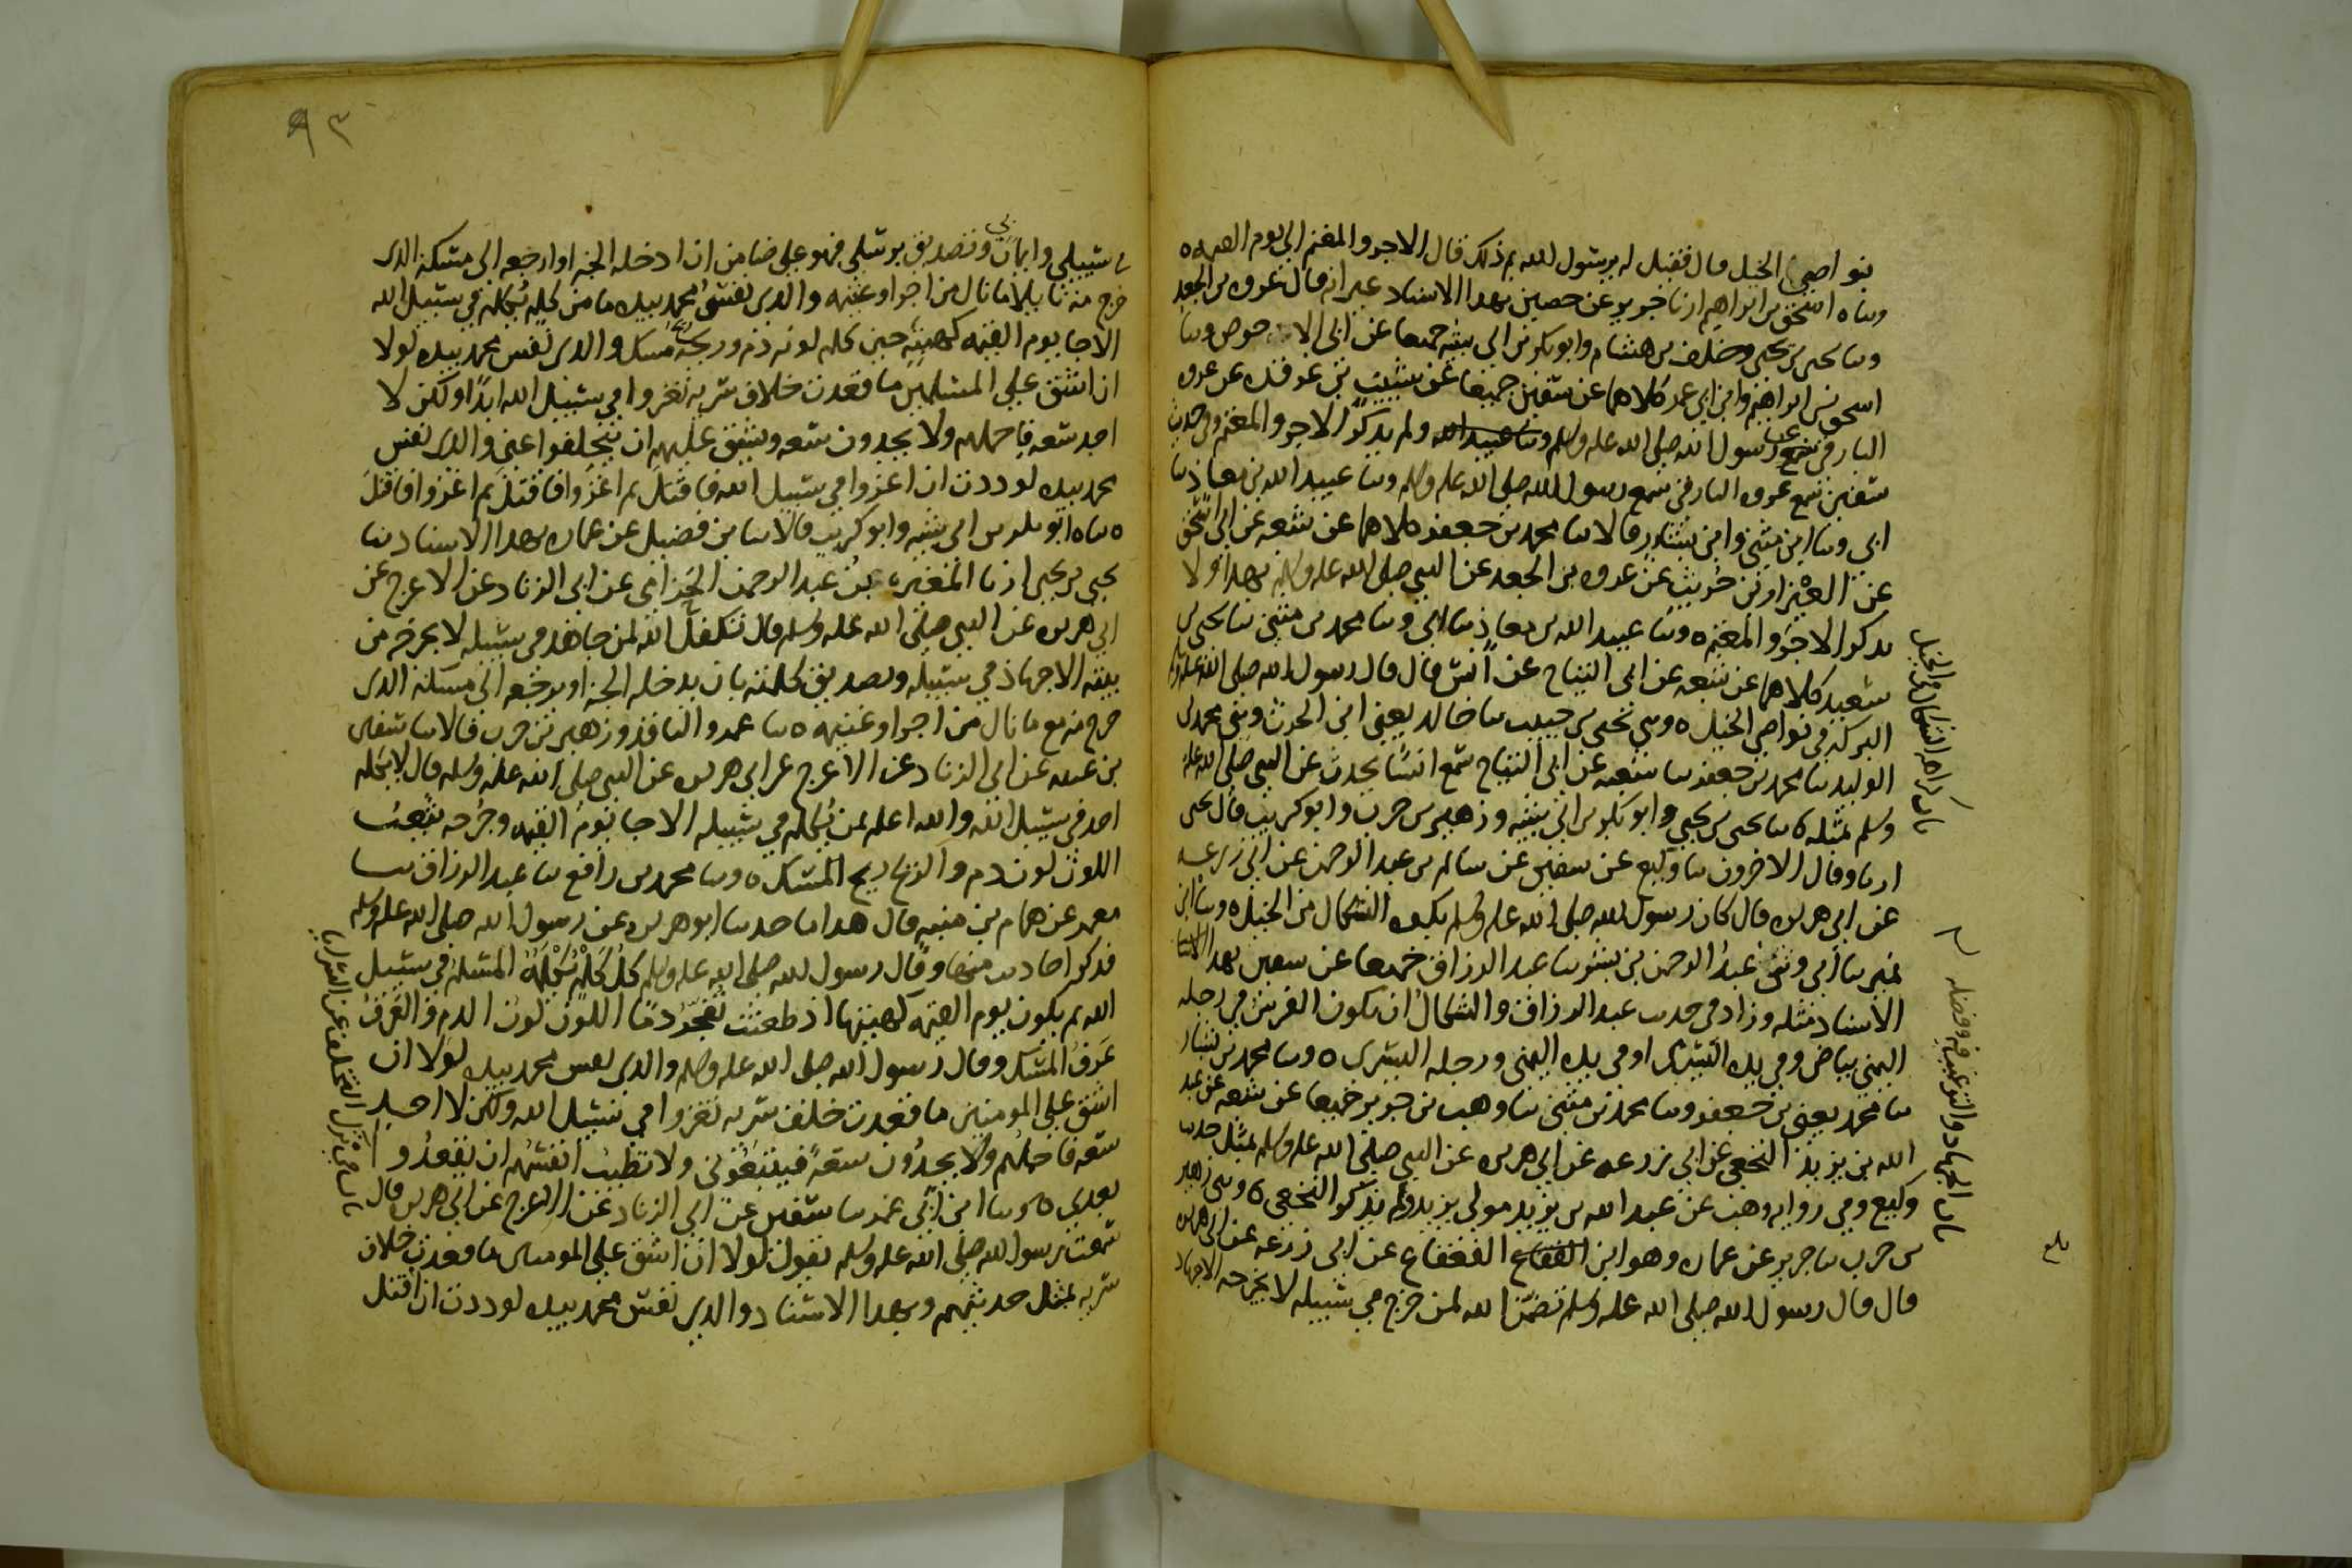 بنواصي الخيل قال فقيل له يرسول الله بم ذلك قال الاجر والمغنم الى يوم القيمه ه
وثناه اسحق بن ابراهيم ارنا جرير عن حصين بهدا الاسناد غير انه قال عروه بن الجعد
وثنا يحيى بن يحيى وخلف بن هشام وابو بكر بن ابي شيبه جميعا عن ابي الاحوص وثنا
اسحق بن ابراهيم وابن ابي عمر كلاهما عن سفين جميعا عن شبيب بن غرقده عن عروه
البارقي عن رسول الله صلى الله عليه وسلم ولم يذكر الاجر والمغنم وفي حديث
سفين سمع عروه البارقي سمع رسول الله صلى الله عليه وسلم وثنا عبيد الله بن معاذ ثنا
ابي وثنا ابن مثنى وابن بشار قالا ثنا محمد بن جعفر كلاهما عن شعبه عن ابي اسحق
عن العيزار بن حريث عن عروه بن الجعد عن النبي صلى الله عليه وسلم بهدا ولا
يدكر الاجر والمغنم ه وثنا عبيد الله بن معاذ ثنا ابي وثنا محمد بن مثنى ثنا يحيى بن
سعيد كلاهما عن شعبه عن ابي التياح عن انس قال قال رسول الله صلى الله عليه وسلم
البركه في نواصي الخيل ه وثني يحيى بن حبيب ثنا خالد يعني ابن الحرث وثني محمد بن
الوليد ثنا محمد بن جعفر ثنا شعبه عن ابي التياح سمع انسا يحدث عن النبي صلى الله عليه
وسلم بمثله ه ثنا يحيى بن يحيى وابو بكر بن ابي شيبه وزهير بن حرب وابو كريب قال يحيى
ارنا وقال الاخرون ثنا وكيع عن سفين عن سالم بن عبد الرحمن عن ابي زرعه
عن ابي هريره قال كان رسول الله صلى الله عليه وسلم يكره الشكال من الخيل ه وثنا ابن
نمير ثنا ابي وثني عبد الرحمن بن بشر ثنا عبد الرزاق جميعا عن سفين بهدا الاسنا
الاسناد مثله وزاد في حديث عبد الرزاق والشكال ان يكون الفرس في رجله
اليمنى بياض وفي يده اليسرى او في يده اليمنى ورجله اليسرى ه وثنا محمد بن بشار
ثنا محمد يعني بن جعفر وثنا محمد بن مثنى ثنا وهب بن جرير جميعا عن شعبه عن عبد
الله بن يزيد النخعي عن ابي زرعه عن ابي هريره عن النبي صلى الله عليه وسلم بمثل حديث
وكيع وفي روايه وهب عن عبد الله بن يزيد مولى يزيد ولم يذكر النخعي ه وثني زهير
بن حرب ثنا جرير عن عماره وهو ابن القعقاع عن ابي زرعه عن ابي هريره
قال قال رسول الله صلى الله عليه وسلم تضمن الله لمن خرج في سبيله لا يخرجه الا جهاد
باب كراهه الشكال من الخيل
باب الجهاد والترغيب فيه وفضله
بلغ
٩٣
في سبيلي وايمان بي وتصديق برسلي فهو علي ضامن ان ادخله الجنه او ارجعه الى مسكنه الدى
خرج منه نايلا ما نال من اجر او غنيمه والدى نفس محمد بيده ما من كلم يكلم في سبيل الله
الا جا يوم القيمه كهيئته حين كلم لونه دم وريحه مسك والدى نفس محمد بيده لولا
ان اشق على المسلمين ما قعدت خلاف سريه تغزوا في سبيل الله ابدا ولكن لا
اجد سعه فاحملهم ولا يجدون سعه ويشق عليهم ان يتخلفوا عني والدى نفس
محمد بيده لوددت ان اغزوا في سبيل الله فاقتل ثم اغزوا فاقتل ثم اغزوا فاقتل
ه ثناه ابو بكر بن ابي شيبه وابو كريب قالا ثنا بن فضيل عن عماره بهدا الاسناد ثنا
يحيى بن يحيى ارنا المغيره بن عبد الرحمن الحزامي عن ابي الزناد عن الاعرج عن
ابي هريره عن النبي صلى الله عليه وسلم قال تكفل الله لمن جاهد في سبيله لا يخرجه من
بيته الا جهاد في سبيله وتصديق كلمته بان يدخله الجنه او يرجعه الى مسكنه الدى
خرج منه مع ما نال من اجر او غنيمه ه ثنا عمرو الناقد وزهير بن حرب قالا ثنا سفين
بن عيينه عن ابي الزناد عن الاعرج عن ابي هريره عن النبي صلى الله عليه وسلم قال لا يكلم
احد في سبيل الله والله اعلم بمن يكلم في سبيله الا جا يوم القيمه وجرحه يثعب
اللون لون دم والريح ريح المسك ه وثنا محمد بن رافع ثنا عبد الرزاق ثنا
معمر عن همام بن منبه قال هدا ما حدثنا ابو هريره عن رسول الله صلى الله عليه وسلم
فدكر احاديث منها وقال رسول الله صلى الله عليه وسلم كل كلم يكلمه المسلم في سبيل
الله ثم يكون يوم القيمه كهيئتها اذ طعنت تفجر دما اللون لون الدم والعرف
عرف المسك وقال رسول الله صلى الله عليه وسلم والدى نفس محمد بيده لولا ان
اشق على المومنين ما قعدت خلف سريه تغزوا في سبيل الله ولكن لا اجد
سعه فاحملهم ولا يجدون سعه فيتبعوني ولا تطيب انفسهم ان يقعدوا
بعدى ه وثنا ابن ابي عمر ثنا سفين عن ابي الزناد عن الاعرج عن ابي هريره قال
سمعت رسول الله صلى الله عليه وسلم يقول لولا ان اشق على المومنين ما قعدت خلاف
سريه بمثل حديثهم وبهدا الاسناد والدى نفس محمد بيده لوددت ان اقتل
باب في ترك التخلف عن السرايا